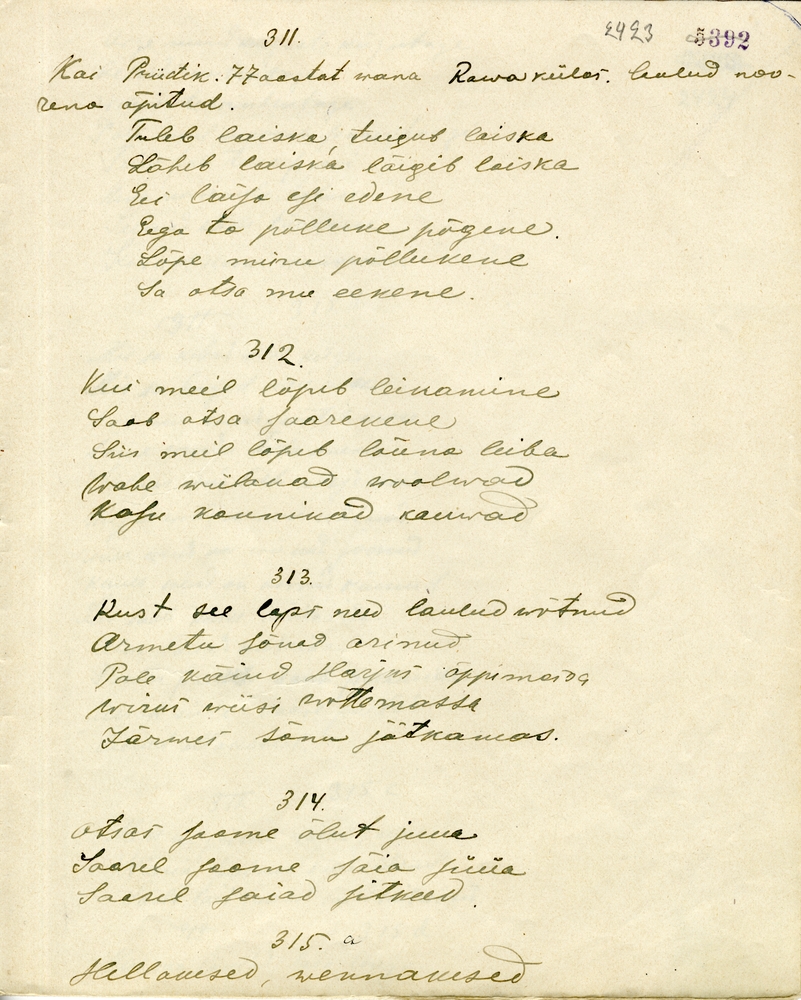 311.
2423 5392
Kai Prüdik. 77 aastat wana Rawa külas. laulud noo-
rena õpitud.
Tuleb laiska, tuigub laiska
Läheb laiska läigib laiska
Ei laisa esi edene
Ega ta põllune põgene.
Lõpe minu põllukene
Sa otsa mu eekene.
312.
Kui meil lõpeb leikamine
Saab otsa saarekene
Siis meil lõpeb lõuna leiba
Wahe wiilakad woolwad
Kasu kannikad kauwad
313.
Kust see laps need laulud wõtnud
Armetu sõnad arinud
Pole käind Harjus õppimaida
Wirus wiisi wõttamassa
Järwes sõnu jätkamas.
314.
Otsas saame õlut juua
Saarel saame säia süüa
Saarel saiad sitked.
315. a
Hellakesed, wennakesed